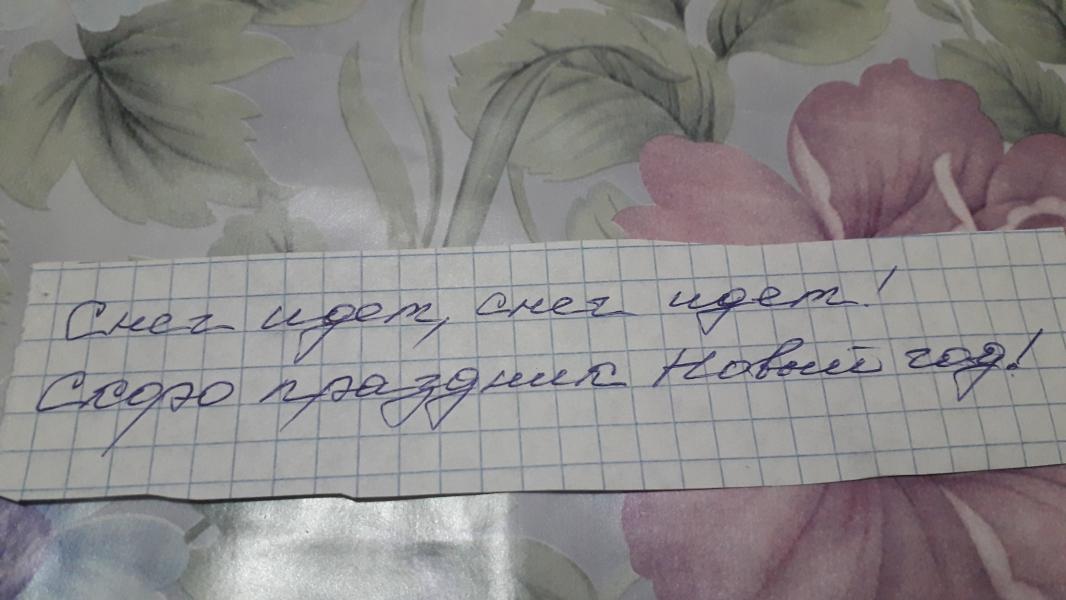 Снег идет, снег идет!
Скоро праздник Новый год!